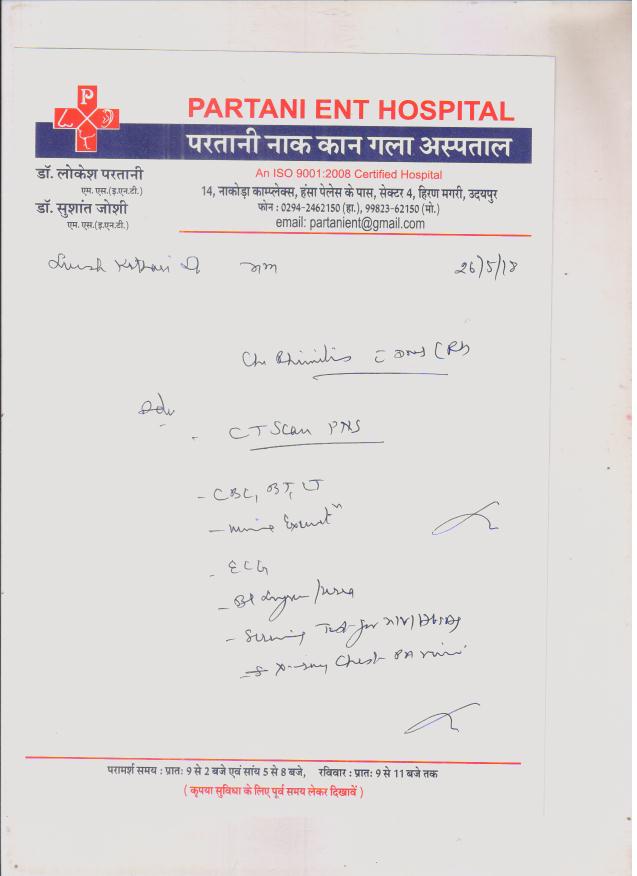 P
PARTANI ENT HOSPITAL
परतानी नाक कान गला अस्पताल
डॉ. लोकेश परतानी
एम. एस.(इ.एन.टी.)
डॉ. सुशांत जोशी
एम. एस.(इ.एन.टी.)
An ISO 9001:2008 Certified Hospital
14, नाकोड़ा काम्प्लेक्स, हंसा पेलेस के पास, सेक्टर 4, हिरण मगरी, उदयपुर
फोन : 0294-2462150 (हा.), 99823-62150 (मो.)
email: partanient@gmail.com
26/5/18
Adv
- CT Scan PNS
- CBC, BT, CT
- ECG
- Screening Test for HIV/HbsAg
- X-ray Chest PA
परामर्श समय : प्रातः 9 से 2 बजे एवं सांय 5 से 8 बजे, रविवार : प्रातः 9 से 11 बजे तक
( कृपया सुविधा के लिए पूर्व समय लेकर दिखावें )